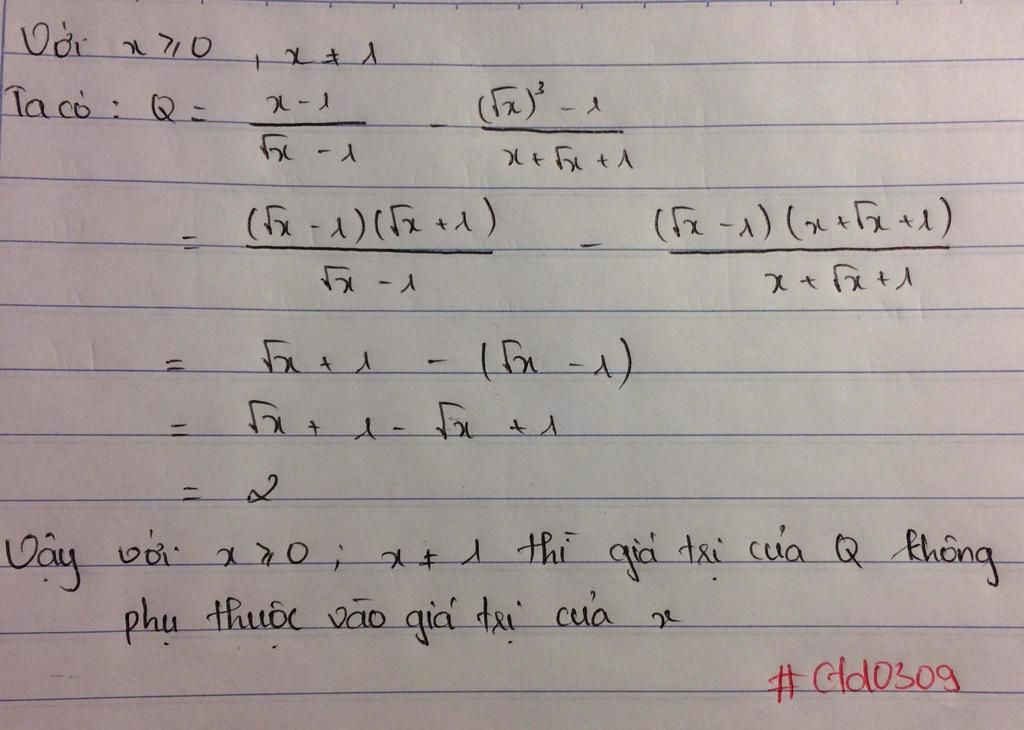 Với x ⩾ 0 , x ≠ 1
Ta có : Q = (x - 1)/(√x - 1) - ((√x)³ - 1)/(x + √x + 1)
= ((√x - 1)(√x + 1))/(√x - 1) - ((√x - 1)(x + √x + 1))/(x + √x + 1)
= √x + 1 - (√x - 1)
= √x + 1 - √x + 1
= 2
Vậy với x ⩾ 0 ; x ≠ 1 thì giá trị của Q không
phụ thuộc vào giá trị của x